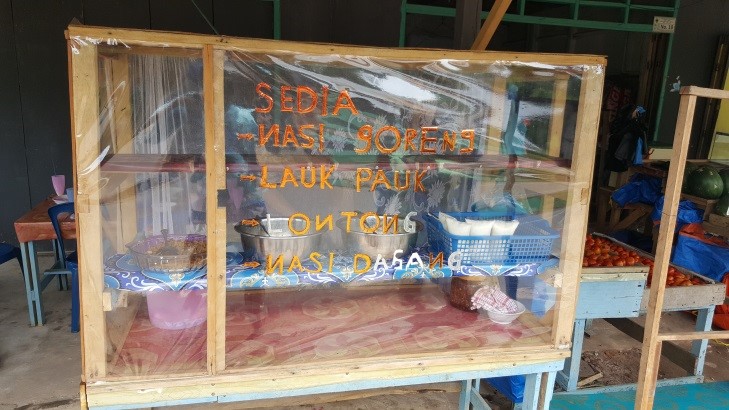 SEDIA
-NASI GORENG
-LAUK PAUK
-LONTONG
-NASI DAGANG